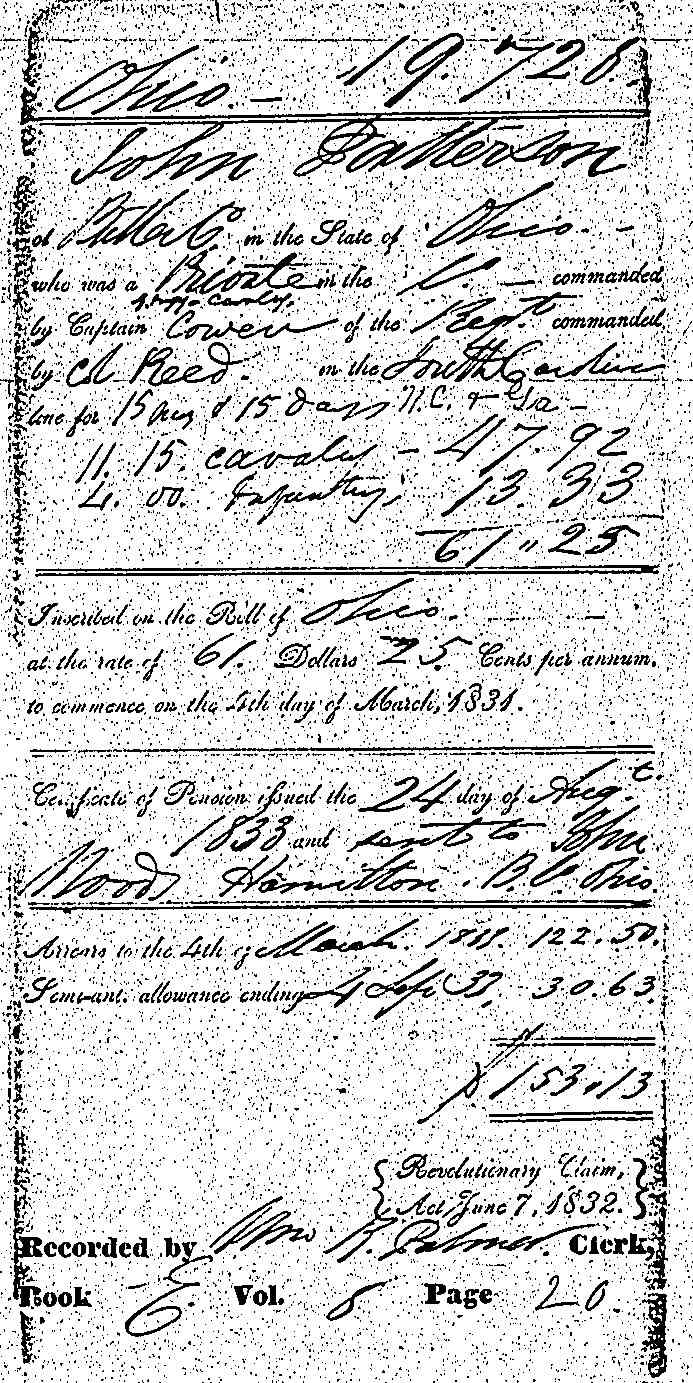 Ohio. — 19.728.
John Patterson
of Butler Co. in the State of Ohio. —
who was a Private in the Co — commanded
by Captain Cowen of the Regt commanded
by Col Reed. in the South Carolina
line for 15 days N.C. & Ga —
11. 15. cavalry — 47.92
4. 00. Infantry, 13.33
61 " 25
Inscribed on the Roll of Ohio. —
at the rate of 61. Dollars 25 Cents per annum,
to commence on the 4th day of March, 1831.
Certificate of Pension issued the 24 day of Augt.
1833 and sent to John
Woods Hamilton. B. Co. Ohio.
Arrears to the 4th of March. 1833. 122.50.
Semi-anl. allowance ending 4 Sept 33, 30.63
$ 153.13
Revolutionary Claim,
Act June 7, 1832.
Recorded by K. Palmer. Clerk,
Book E. Vol. 8 Page 20.